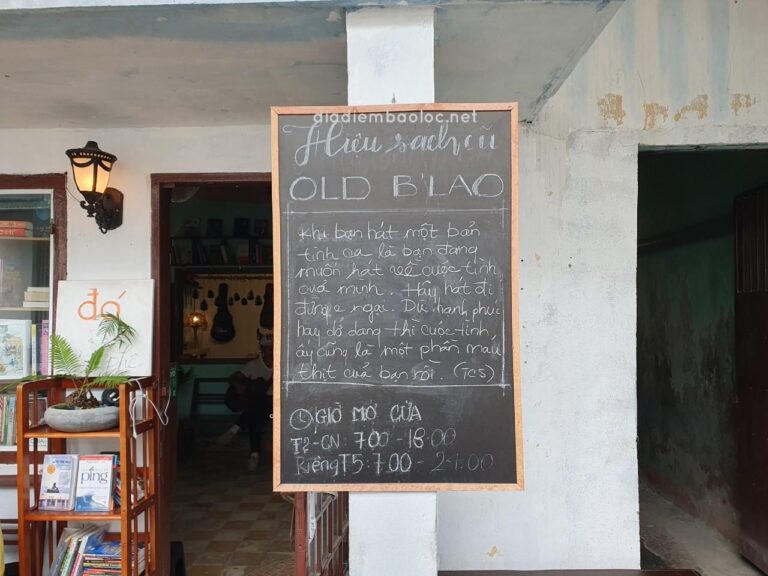 diadiembaoloc.net
Hiệu sách cũ
OLD B'LAO
Khi bạn hát một bản
tình ca là bạn đang
muốn hát về cuộc tình
của mình. Hãy hát đi
đừng e ngại. Dù hạnh phúc
hay dở dang thì cuộc tình
ấy cũng là một phần máu
thịt của bạn rồi. (TCS)
GIỜ MỞ CỬA
T2-CN: 7.00 - 18:00
Riêng T5: 7.00 - 21:00
đó
ping